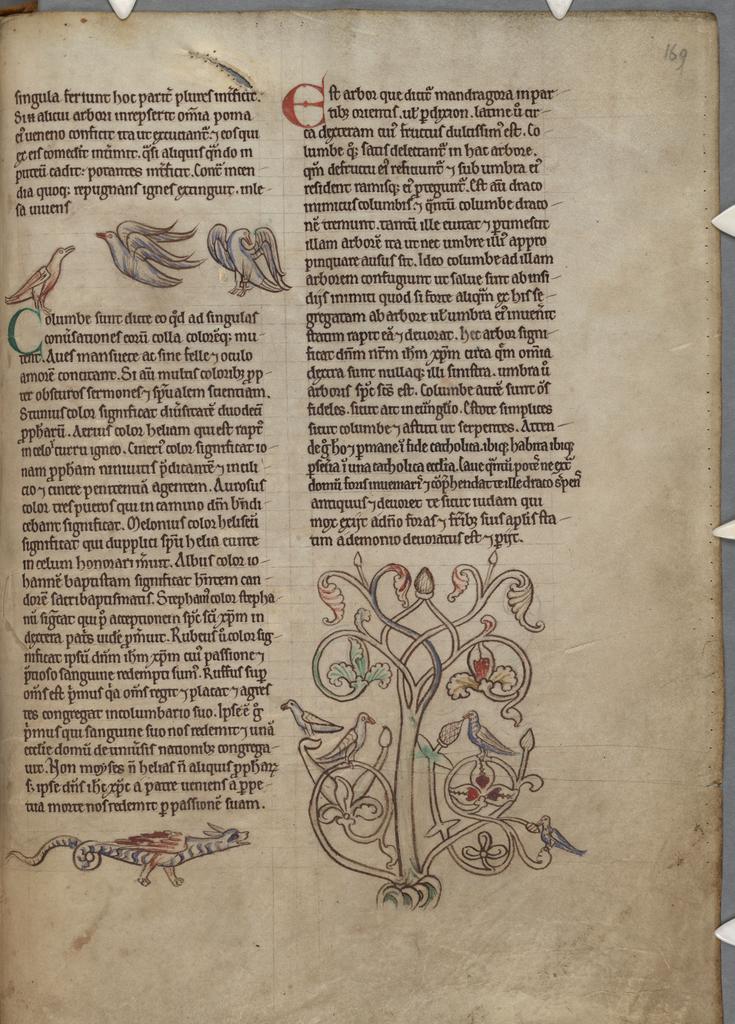 169
singula feriunt hoc partit͛ plures int͛ficit.
Si u͛ alicui arbori intrepserit om̄ia poma
ei ueneno conficit ita ut excutiant͛ ⁊ eos qui
ex eis comed͛it int͛imit. q̄si aliquis q̄ndo in
puteū cadit: potantes int͛ficit. Cont͛ incen
dia quoq; repugnans ignes extinguit.
sa uiuens
Columbe sunt dicte eo qd̄ ad singulas
conu͛sationes eorū colla colorēq; mu
tent. Aues mansuete ac sine felle ⁊ oculo
amorē concitant. Si au͛ multis colorib; pp
ut obscuros sermones ⁊ sp̄ualem scientiam.
color significat diu͛sitatē duodecī
ppharū. Aerius color heliam qui est rapt͛
in celo curru igneo. Ciner͛ color significat io
nam ppham niniuitis p̄dicantē ⁊ in cili
cio ⁊ cinere penitentiā agentem. Aurosus
color tres pueros qui in camino dn̄m bn̄di
cebant significat. Melonius color heliseū
significat qui dupplici sp̄u helia eunte
in celum honorari m͛uit. Albus color io
hannē baptistam significat h͛ntem can
dorē sacri baptismatis. Stephani͛ color stepha
nū sig͛cat qui p͛ acceptionem sp̄c sc̄i xp̄m in
dextera pat͛s uide͛ p̄muit. Rubeus u͛ color sig
nificat ipsū dn̄m ihm̄ xp̄m cui͛ passione ⁊
p̄tioso sanguine redempti sum͛. Ruffus sup͛
om̄s est p̄mus q̄a om̄s regit ⁊ placat ⁊ agres
tes congregat in columbario suo. Ipse ē g͛
p̄mus qui sanguine suo nos redemit ⁊ unā
ecclie domū de uniu͛sis nationib; congrega
uit. Non moyses n̄ helias n̄ aliquis pphar͛
s; ipse dn̄s ihc xp̄c a patre ueniens a ppe
tua morte nos redemit p͛ passionē suam.
Est arbor que dicit͛ mandragora in par
tib; orientis. ul͛ pdixion. latine u͛ cir
ca dexteram cui͛ fructus dulcissim͛ est. Co
lumbe q͛; satis delectant͛ in hac arbore.
qm̄ de fructu ei͛ reficiunt͛ ⁊ sub umbra ei͛
resident ramisq; ei͛ ptegunt͛. Est au͛ draco
inimicus columbis ⁊ q̄ntū columbe draco
nē tremunt. tantū ille euitat ⁊ p͛timescit
illam arborē ita ut nec umbre illi͛ appro
pinquare ausus sit. Ideo columbe ad illam
arborem confugiunt ut salue sint ab insi
diis inimici quod si forte aliqm̄ ex his se
gregatam ab arbore ul͛ umbra ei͛ inuen͛it
statim rapit eā ⁊ deuorat. Hec arbor signi
ficat dn̄m nr̄m ihm̄ xp̄m circa qm̄ om̄ia
dextra sunt nullaq; illi sinistra. umbra u͛
arboris sp̄c sc̄s est. Columbe aute͛ sunt om̄s
fideles. sicut ait in eu͛nglio. Estote simplices
sicut columbe ⁊ astuti ut serpentes. Atten
de g͛ ho ⁊ p͛mane ī fide catholica. ibiq; habita ibiq;
p͛seu͛a ī una catholica ecclia. Caue q̄ntū potes ne ext͛
domū foris inueniaris ⁊ cōphendat te ille draco s͛pens
antiquus ⁊ deuoret te sicut iudam qui
mox exiit a dn̄o foras ⁊ fr̄ib; suis aplis sta
tim a demonio deuoratus est ⁊ p͛iit.